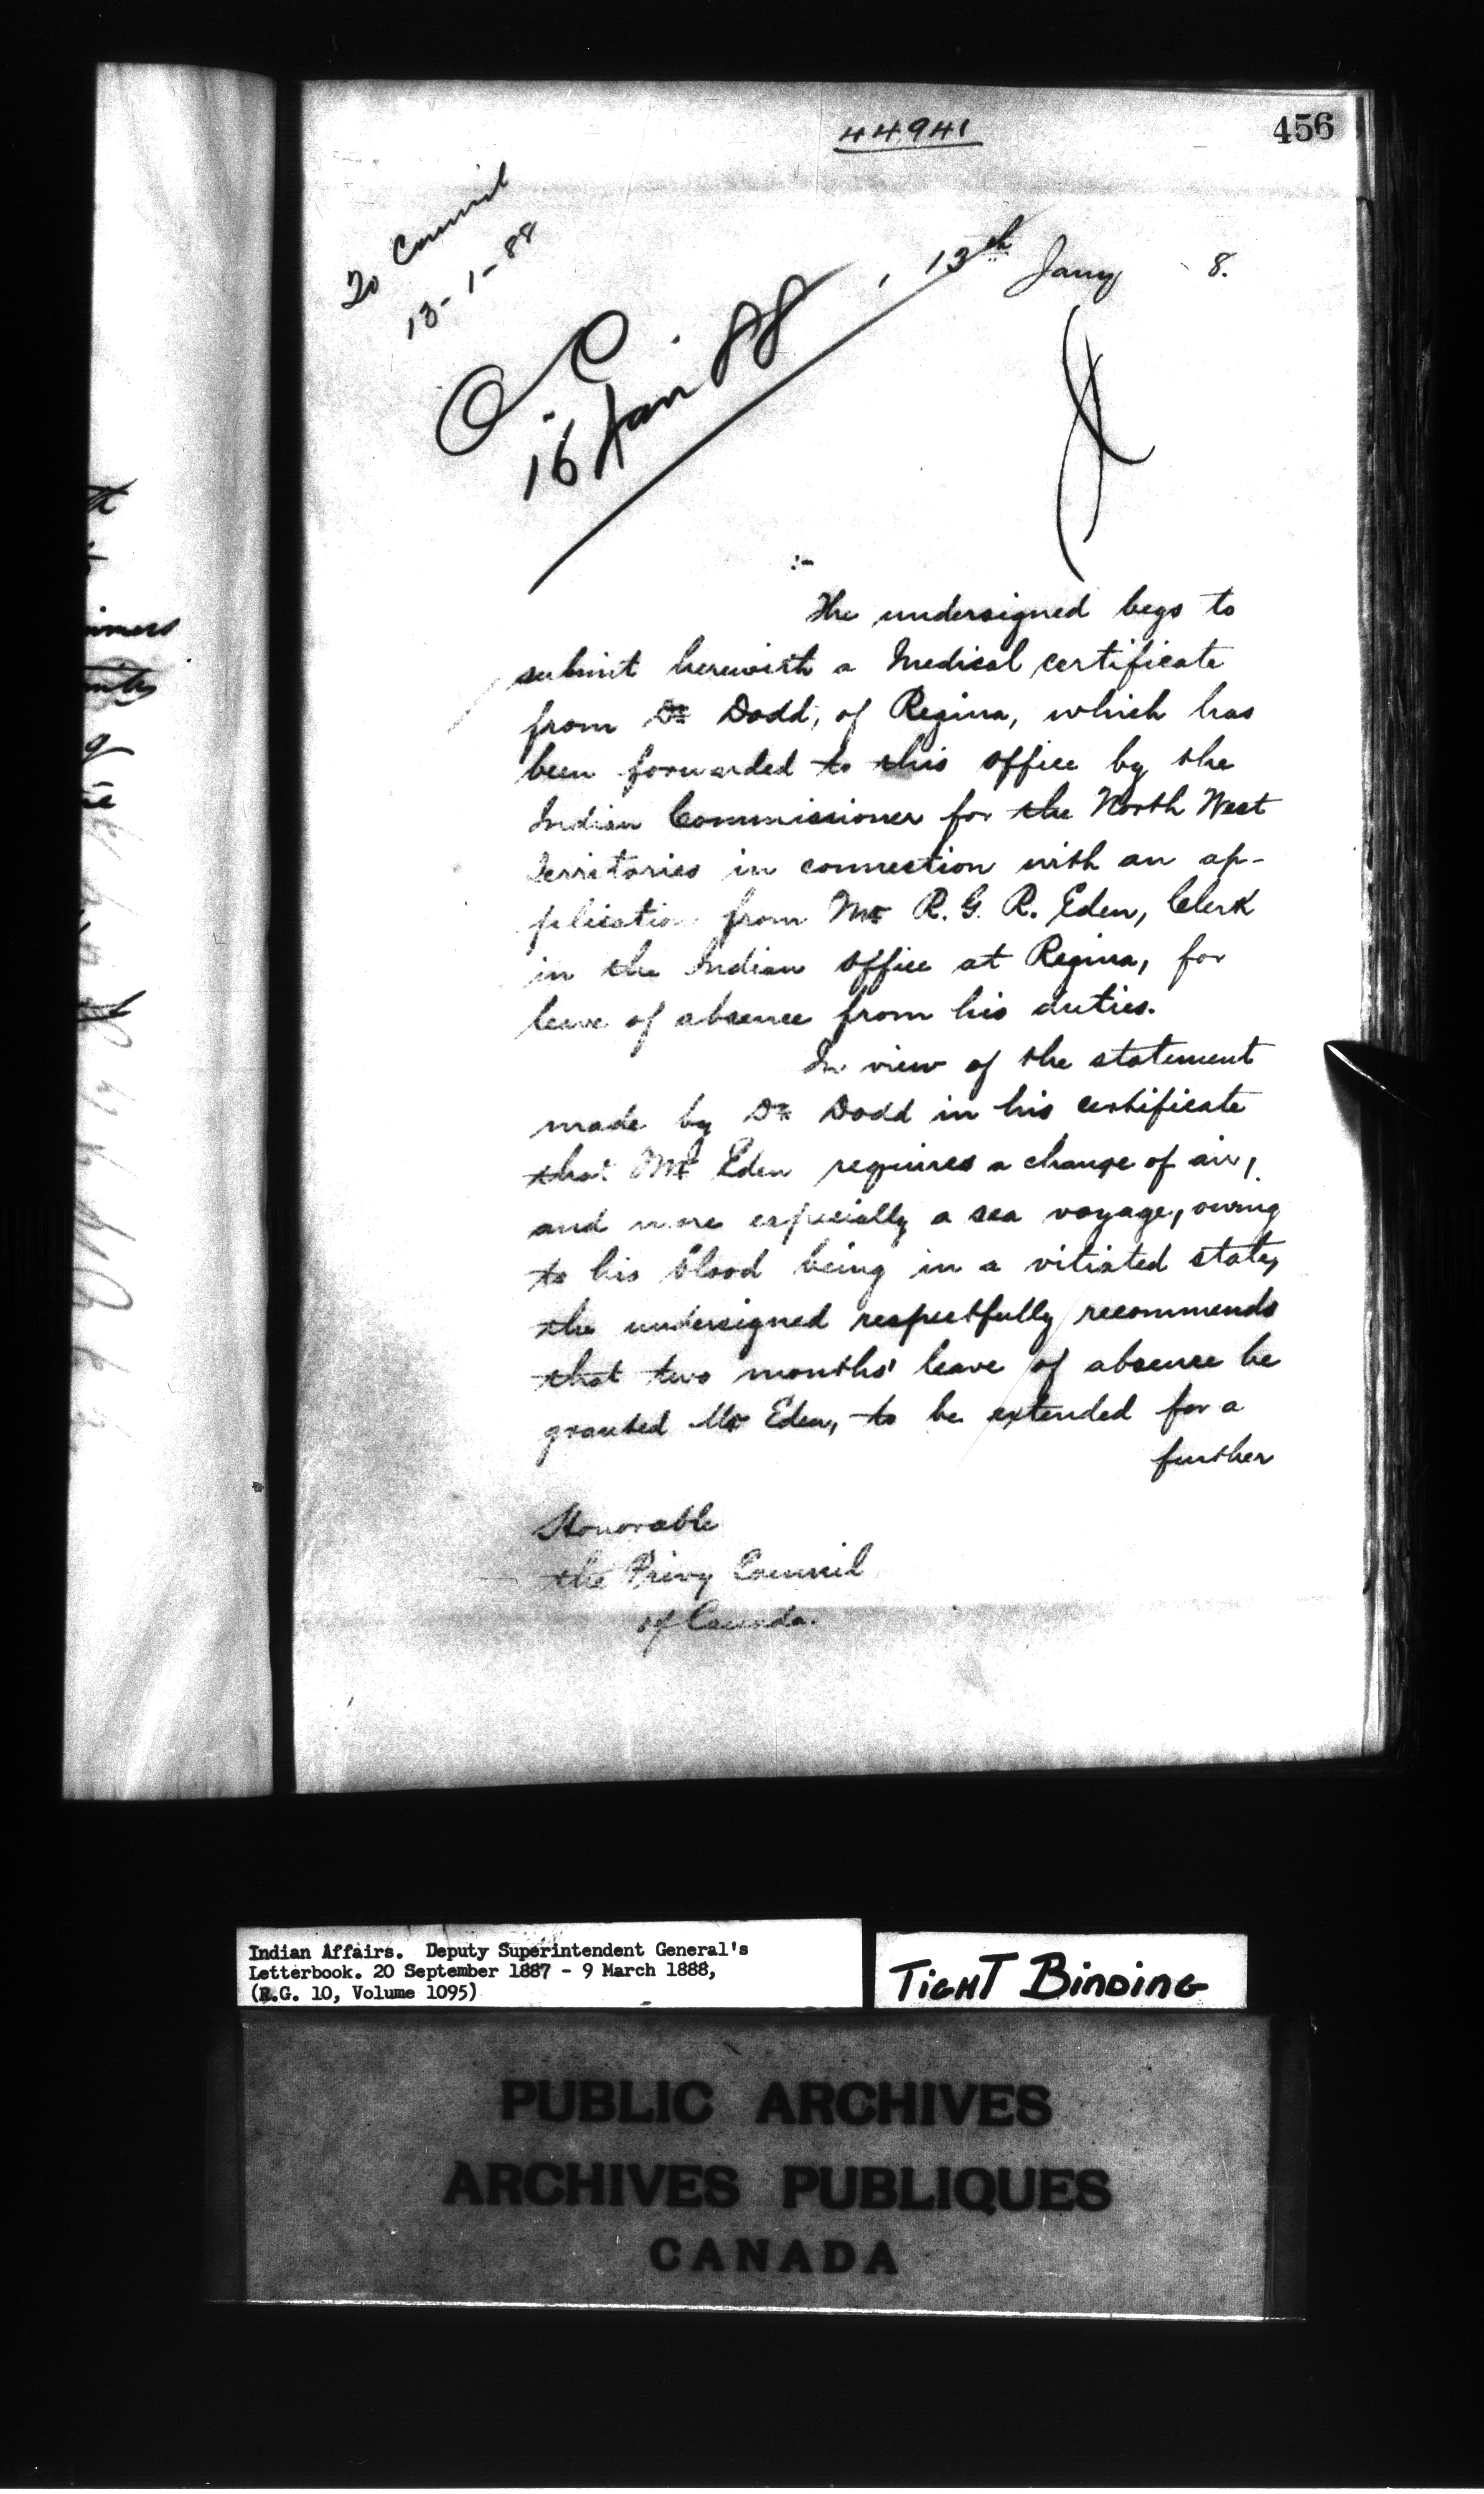 44941
456
To Council
13-1-88
O.C.
16 Jan. 88
, 13th Jany 8.
:-
The undersigned begs to
submit herewith a Medical certificate
from Dr Dodd, of Regina, which has
been forwarded to this office by the
Indian Commissioner for the North West
Territories in connection with an ap-
plication from Mr R. G. R. Eden, Clerk
in the Indian office at Regina, for
leave of absence from his duties.
In view of the statement
made by Dr Dodd in his certificate
that Mr Eden requires a change of air,
and more especially a sea voyage, owing
to his blood being in a vitiated state,
the undersigned respectfully recommends
that two months' leave of absence be
granted Mr Eden, to be extended for a
further
Honorable
the Privy Council
of Canada.
Indian Affairs. Deputy Superintendent General's
Letterbook. 20 September 1887 - 9 March 1888,
(R.G. 10, Volume 1095)
TIGHT BINDING
PUBLIC ARCHIVES
ARCHIVES PUBLIQUES
CANADA